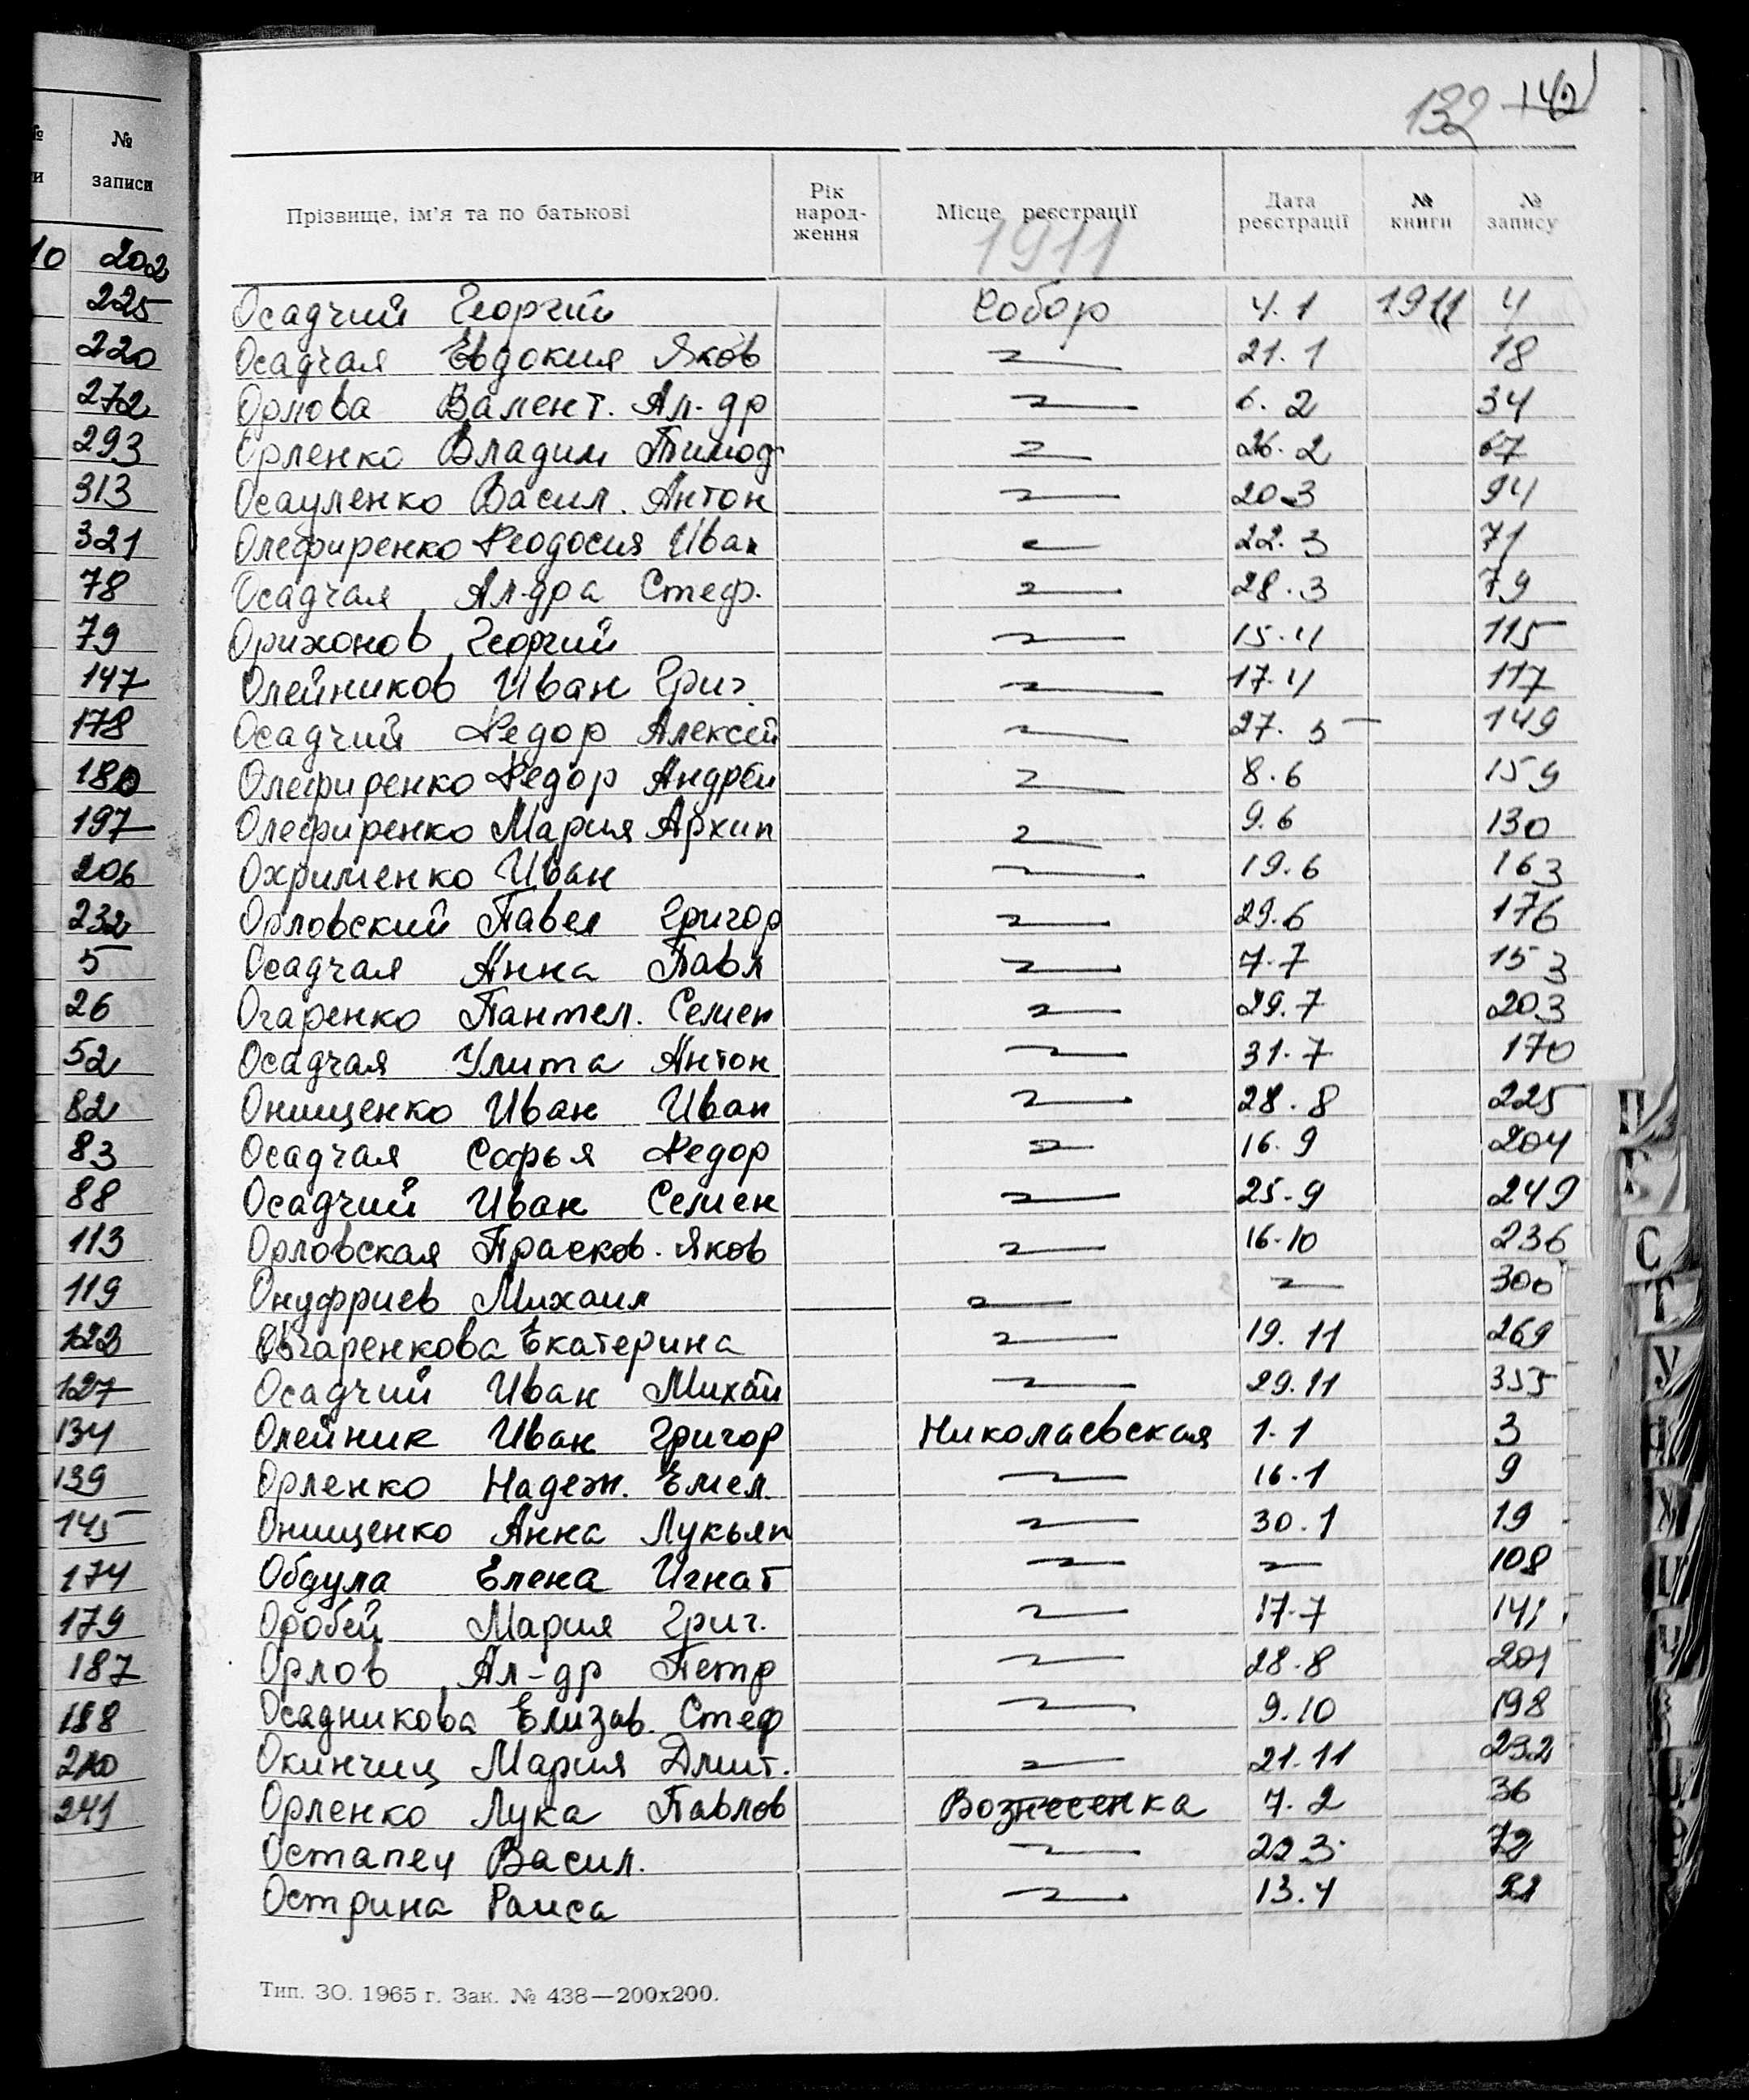 №
записи
10 202
225
220
272
293
313
321
78
79
147
178
180
197
206
232
5
26
52
82
83
88
113
119
123
127
134
139
145
174
179
187
188
210
241
132 142
Прізвище, ім'я та по батькові Рік народ-ження Місце реєстрації Дата реєстрації № книги № запису
1911
Осадчий Георгий Собор 4.1 1911 4
Осадчая Евдокия Яков 21.1 18
Орлова Валент. Ал-др 6.2 34
Орленко Владим Тимоф 26.2 67
Осауленко Васил. Антон 20.3 94
Олефиренко Феодосия Иван 22.3 71
Осадчая Ал-дра Стеф. 28.3 79
Орихонов Георгий 15.4 115
Олейников Иван Григ. 17.4 117
Осадчий Федор Алексей 27.5 149
Олефиренко Федор Андрей 8.6 159
Олефиренко Мария Архип 9.6 130
Охрименко Иван 19.6 163
Орловский Павел Григор 29.6 176
Осадчая Анна Павл 7.7 153
Огаренко Пантел. Семен 29.7 203
Осадчая Улита Антон 31.7 170
Онищенко Иван Иван 28.8 225
Осадчая Софья Федор 16.9 204
Осадчий Иван Семен 25.9 249
Орловская Прасков. Яков 16.10 236
Онуфриев Михаил 300
Овчаренкова Екатерина 19.11 269
Осадчий Иван Михай 29.11 355
Олейник Иван Григор Николаевская 1.1 3
Орленко Надеж. Емел. 16.1 9
Онищенко Анна Лукьян 30.1 19
Обдула Елена Игнат 108
Оробей Мария Григ. 17.7 141
Орлов Ал-др Петр 28.8 201
Осадникова Елизав. Стеф 9.10 198
Окинчиц Мария Дмит. 21.11 232
Орленко Лука Павлов Вознесенка 7.2 36
Остапец Васил. 22.3 72
Острина Раиса 13.4
Тип. ЗО. 1965 г. Зак. № 438—200х200.
П
Р
С
Т
У